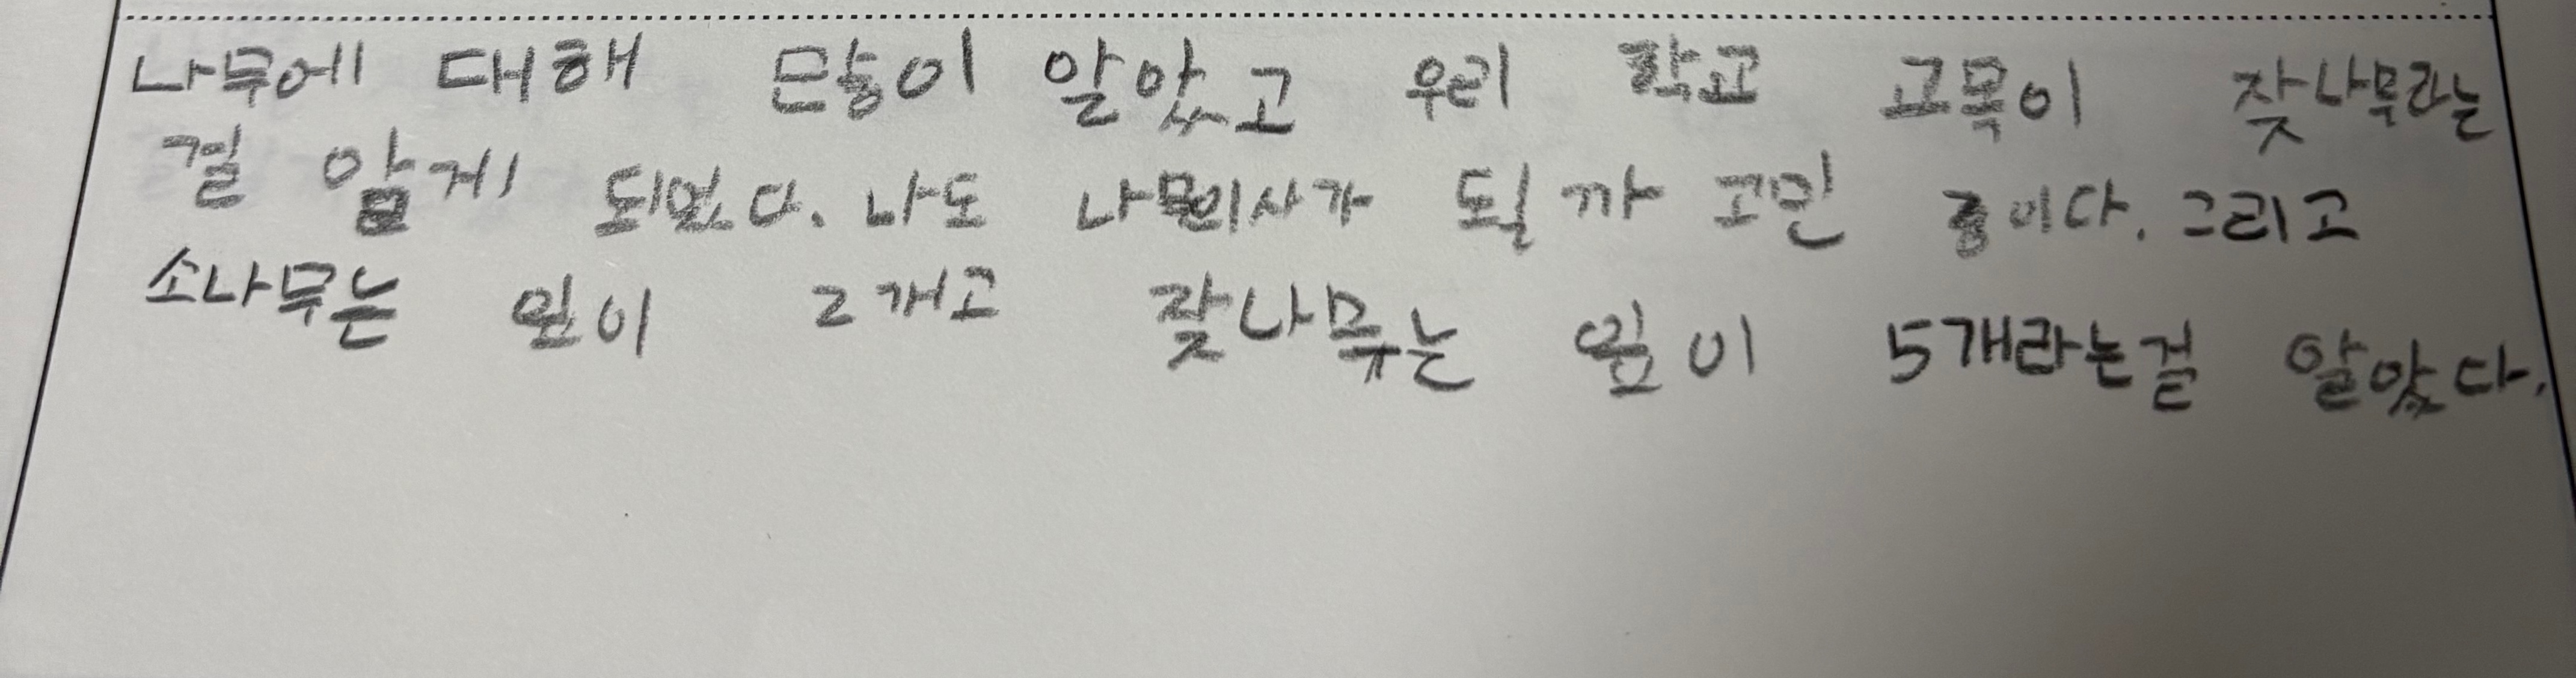 나무에 대해 많이 알았고 우리 학교 교목이 잣나무라는
걸 알게 되었다. 나도 나무의사가 될까 고민 중이다. 그리고
소나무는 잎이 2개고 잣나무는 잎이 5개라는걸 알았다.